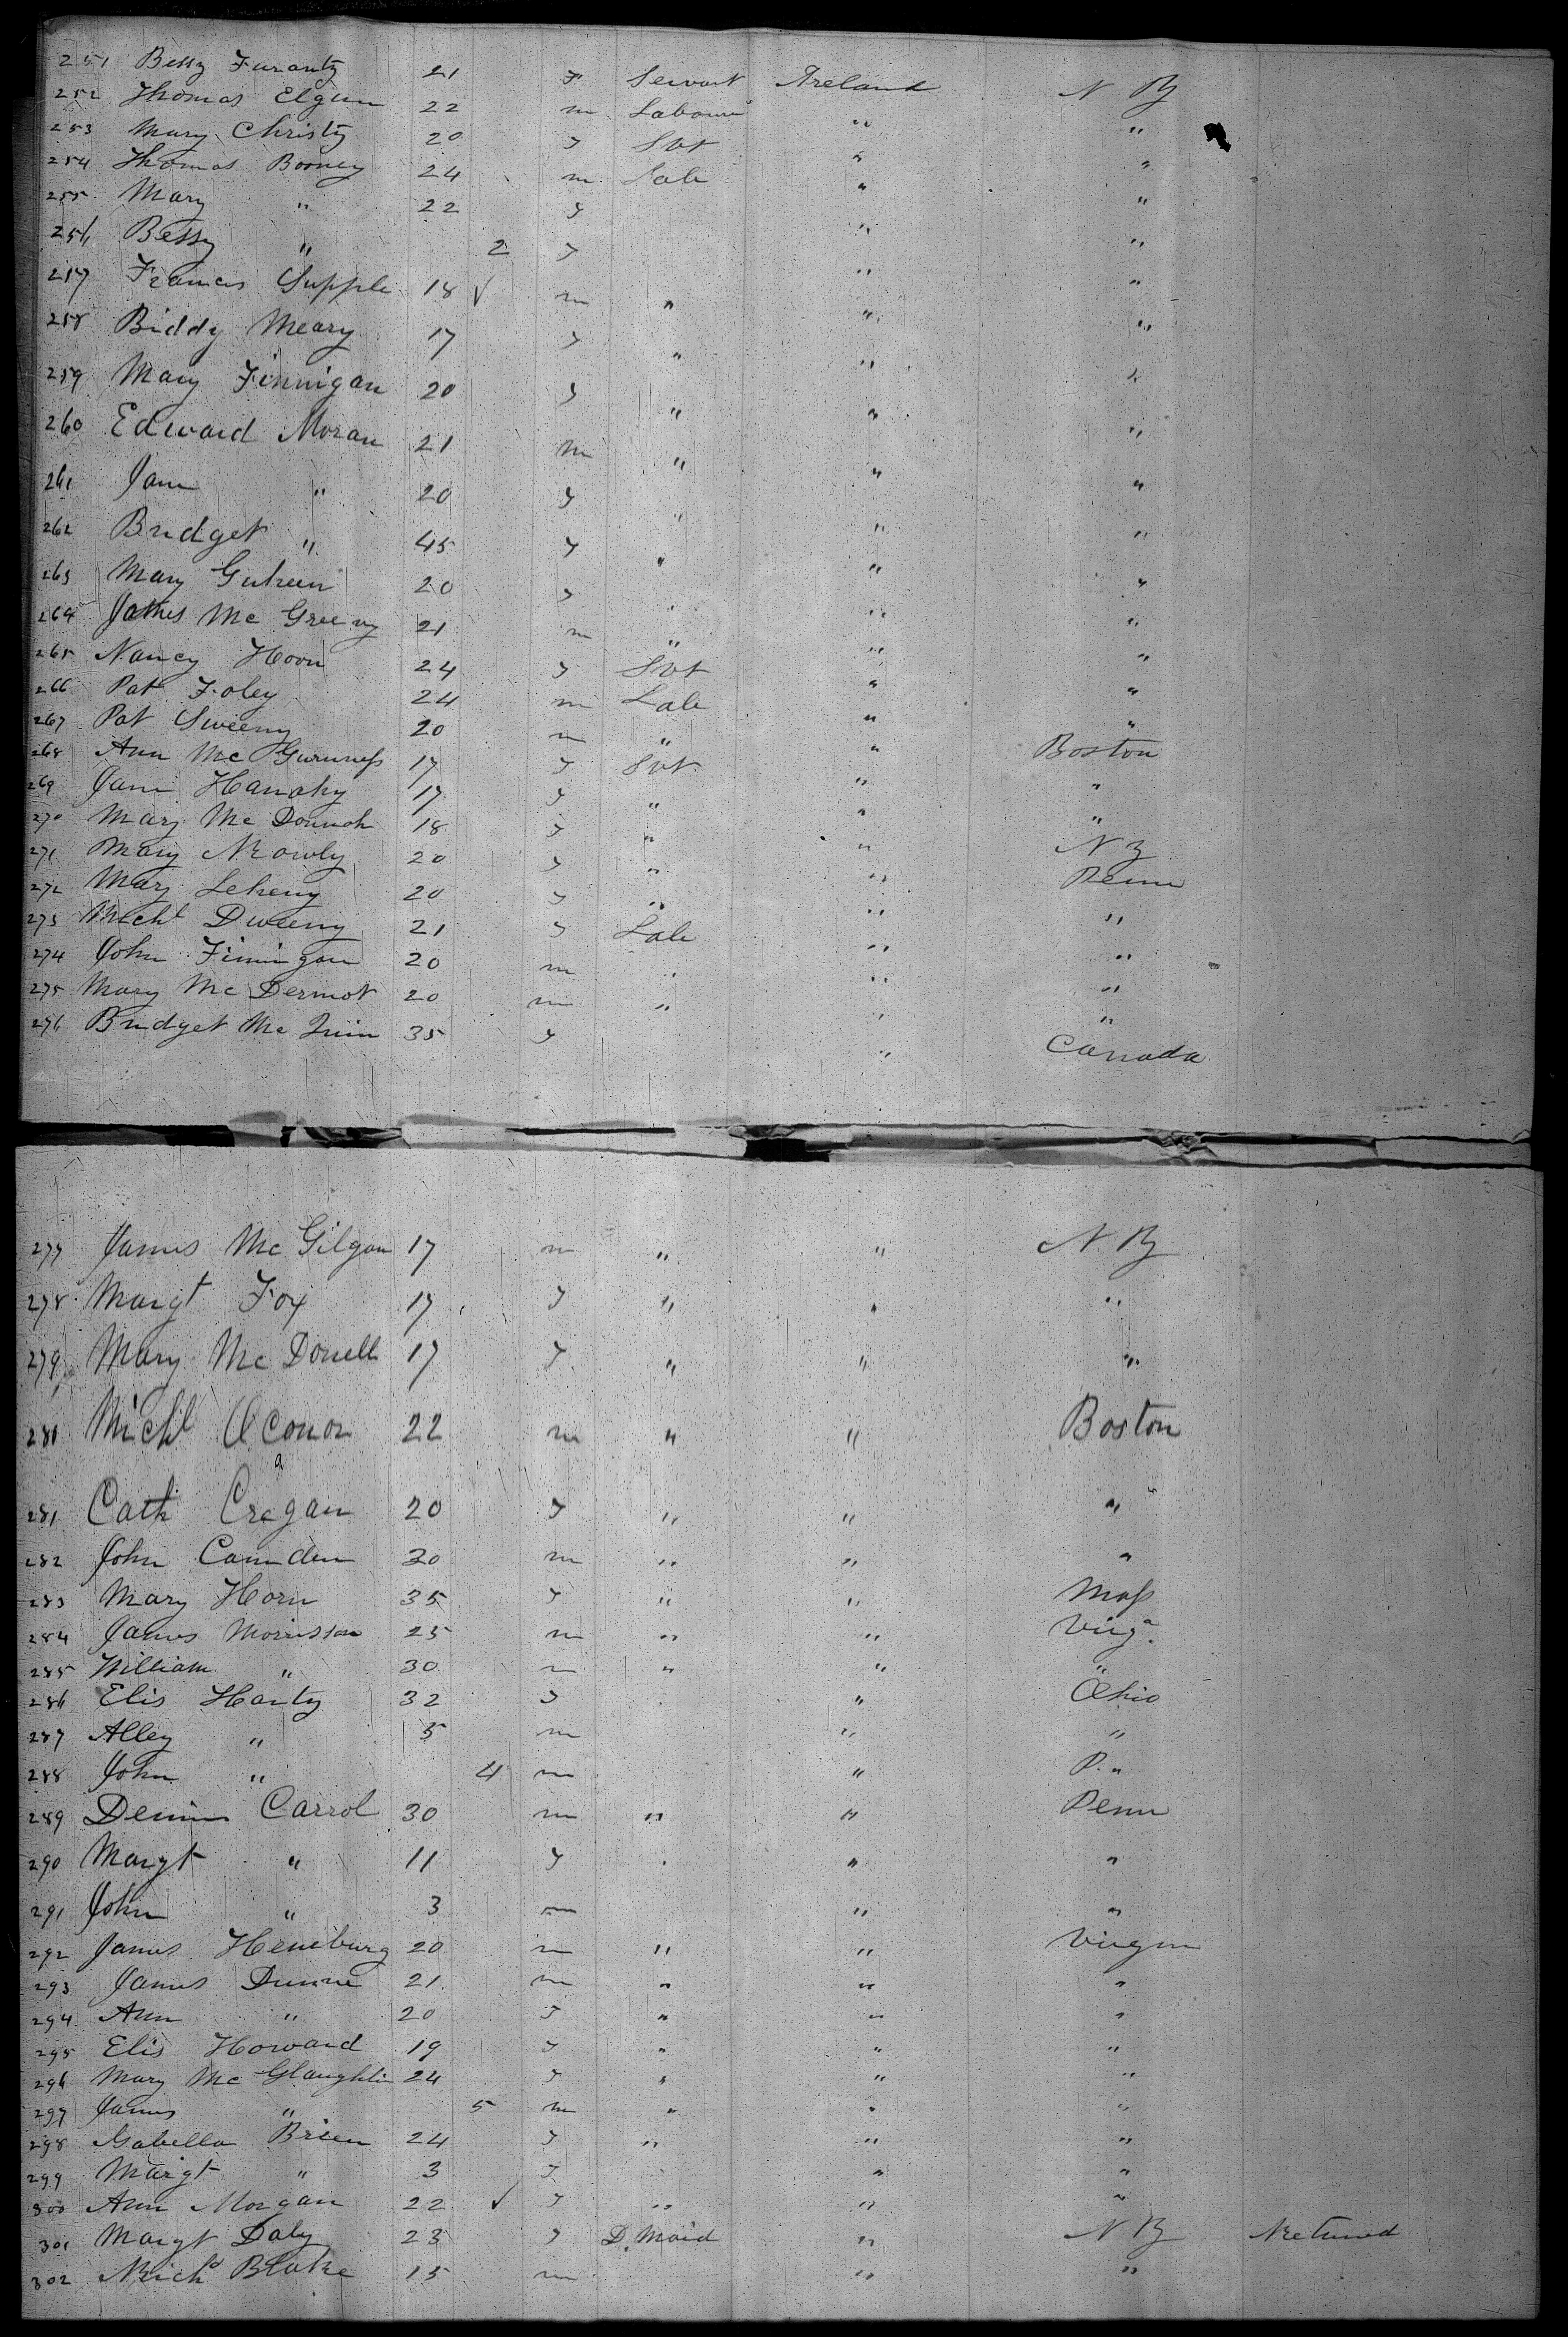 251 Bessy Furanty 21 F Servant Ireland N Y
252 Thomas Elgun 22 m Labourer " "
253 Mary Christy 20 F Svt " "
254 Thomas Booney 24 m Lab " "
255 Mary " 22 F " "
256 Bessy " 2 F " "
257 Frances Supple 18 √ m " " "
258 Biddy Meary 17 F " " "
259 Mary Finnigan 20 F " " "
260 Edward Moran 21 m " " "
261 Jane " 20 F " " "
262 Bridget " 45 F " " "
263 Mary Guheen 20 F " " "
264 James Mc Greevy 21 m " " "
265 Nancy Hoon 24 F Svt " "
266 Pat Foley 24 m Lab " "
267 Pat Sweeny 20 m " " "
268 Ann Mc Gurness 17 F Svt " Boston
269 Jane Hanahy 17 F " " "
270 Mary Mc Donnoh 18 F " " "
271 Mary Rowly 20 F " " N Y
272 Mary Leheny 20 F " " Penn
273 Michl Dweeny 21 F Lab " "
274 John Finnigan 20 m " " "
275 Mary Mc Dermot 20 m " " "
276 Bridget Mc Quin 35 F " Canada
277 James Mc Gilgan 17 m " " N Y
278 Margt Fox 17 F " " "
279 Mary Mc Donell 17 F " " "
280 Michl O Conor 22 m " " Boston
281 Cath Cragan 20 F " " "
282 John Camden 30 m " " "
283 Mary Horn 35 F " " Mass
284 James Morrisson 25 m " " Virga
285 William " 30 m " " "
286 Elis Hanty 32 F " Ohio
287 Alley " 5 m " "
288 John " 4 m " P. "
289 Dennis Carrol 30 m " " Penn
290 Margt " 11 F " "
291 John " 3 m " "
292 James Heneburg 20 m " " Virgin
293 James Dunne 21 m " " "
294 Ann " 20 F " " "
295 Elis Howard 19 F " " "
296 Mary Mc Glaughlin 24 F " " "
297 James " 5 m " " "
298 Isabella Brien 24 F " " "
299 Margt " 3 F " "
300 Ann Morgan 22 √ F " " "
301 Margt Daly 23 F D. Maid " N Y Returned
302 Richd Blake 15 m " "